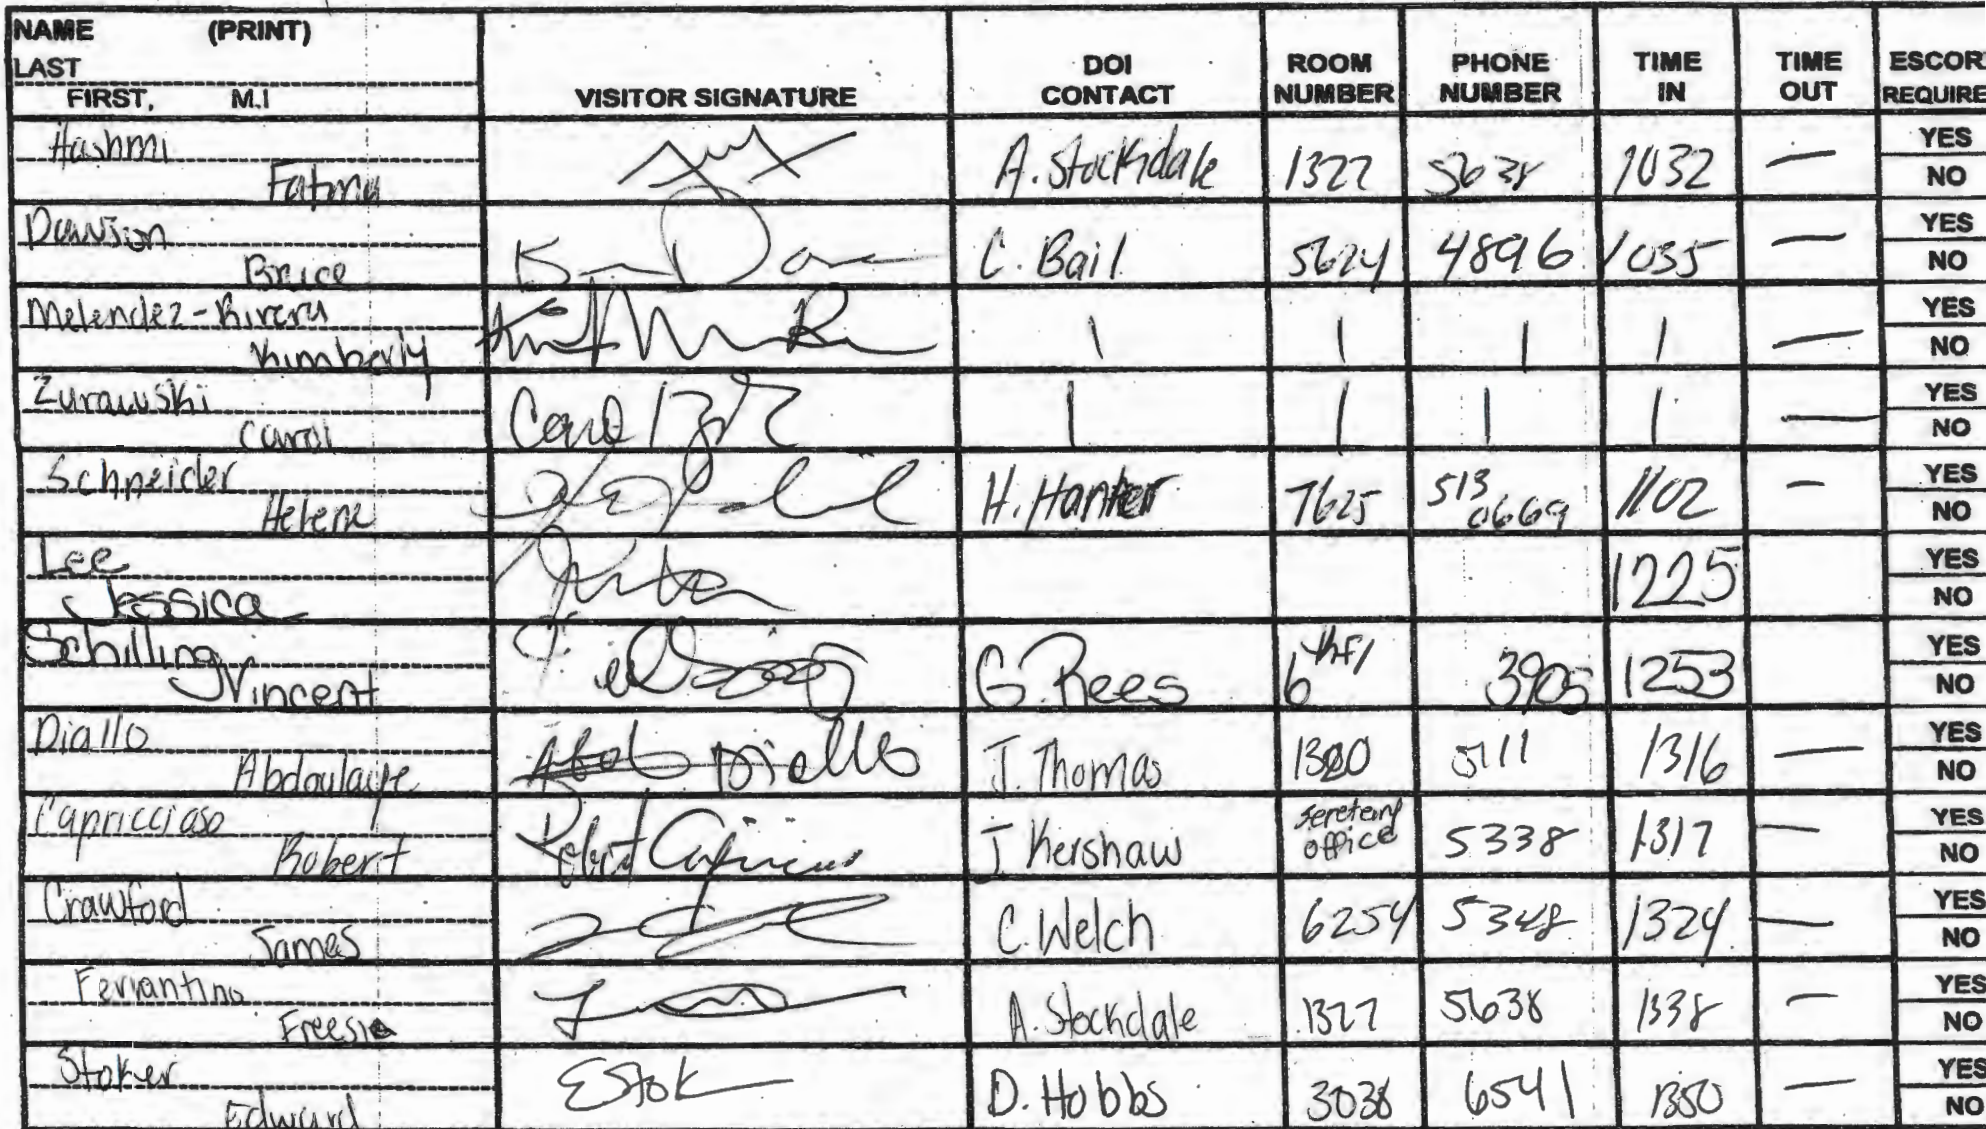 NAME (PRINT)
LAST
FIRST, M.I
VISITOR SIGNATURE
DOI CONTACT
ROOM NUMBER
PHONE NUMBER
TIME IN
TIME OUT
ESCOR
REQUIRE
Hashmi
Fatma
A. Stockdale 1327 5638 1032 —
YES
NO
Dawson
Brice
C. Bail 5624 4896 1035 —
YES
NO
Melendez-Rivera
Kimberly
| | | | —
YES
NO
Zurawski
Carol
Carol
| | | | —
YES
NO
Schneider
Helene
H. Hanter 7625 513 0669 1102 —
YES
NO
Lee
Jessica
1225
YES
NO
Schilling
Vincent
G. Rees 6th fl 3905 1253
YES
NO
Diallo
Abdoulaye
Diallo
J. Thomas 1380 5111 1316 —
YES
NO
Capriccioso
Robert
Robert
J Kershaw sereterry office 5338 1317 —
YES
NO
Crawford
James
C. Welch 6254 5348 1324 —
YES
NO
Ferrantino
Freesia
A. Stockdale 1327 5638 1338 —
YES
NO
Stoker
Edward
EStok
D. Hobbs 3038 6541 1350 —
YES
NO